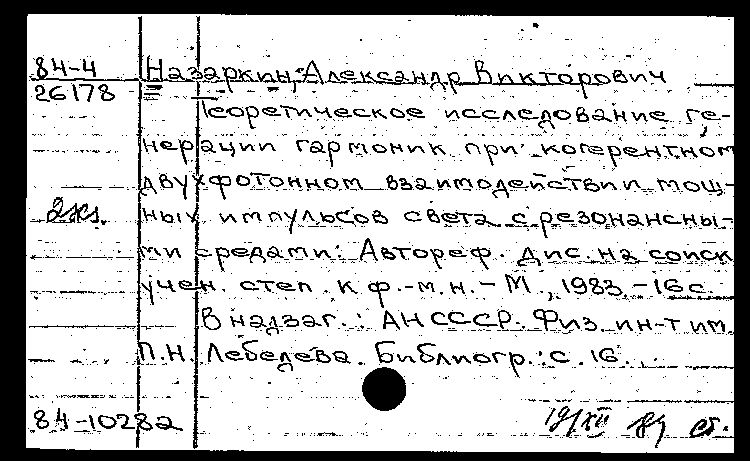 84-4 Назаркин, Александр Викторович
26178
Теоретическое исследование ге-
нерации гармоник при когерентном
двухфотонном взаимодействии мощ-
2экз. ных импульсов света с резонансны-
ми средами: Автореф. дис. на соиск
учен. степ. к ф.-м.н. - М., 1983. - 16 с.
В надзаг.: АН СССР. Физ. ин-т им
П.Н. Лебедева. Библиогр.: с. 16.
84-10282 19/XII